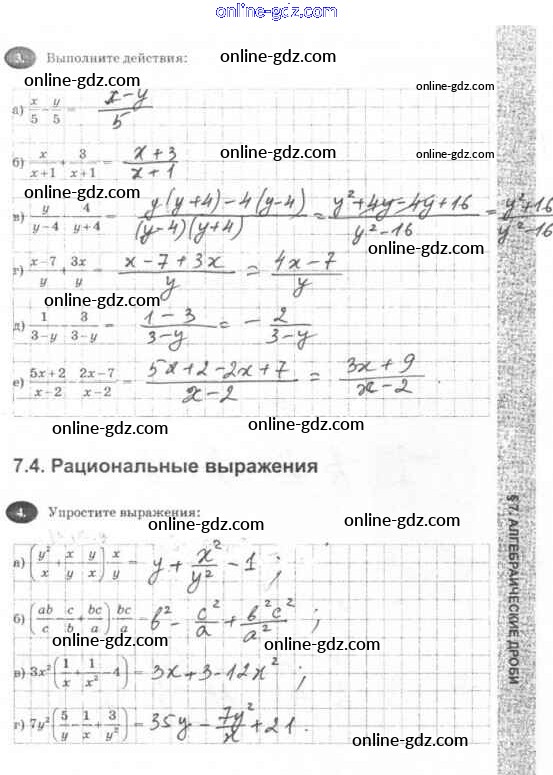 online-gdz.com
3. Выполните действия: online-gdz.com
online-gdz.com
а) x/5 - y/5 = (x-y)/5
online-gdz.com
б) x/(x+1) + 3/(x+1) = (x+3)/(x+1)
online-gdz.com online-gdz.com
online-gdz.com
в) y/(y-4) - 4/(y+4) = (y(y+4)-4(y-4))/((y-4)(y+4)) = (y²+4y-4y+16)/(y²-16) = (y²+16)/(y²-16)
online-gdz.com
г) (x-7)/y + 3x/y = (x-7+3x)/y = (4x-7)/y
online-gdz.com
д) 1/(3-y) - 3/(3-y) = (1-3)/(3-y) = - 2/(3-y)
online-gdz.com
online-gdz.com
е) (5x+2)/(x-2) - (2x-7)/(x-2) = (5x+2-2x+7)/(x-2) = (3x+9)/(x-2)
online-gdz.com online-gdz.com
7.4. Рациональные выражения
4. Упростите выражения: online-gdz.com
online-gdz.com
а) (y²/x + x/y - y/x) · x/y = y + x²/y² - 1;
online-gdz.com
б) (ab/c - c/b + bc/a) · bc/a = b² - c²/a + b²c²/a²;
online-gdz.com
в) 3x²(1/x + 1/x² - 4) = 3x+3-12x²;
online-gdz.com
г) 7y²(5/y - 1/x + 3/y²) = 35y - 7y²/x + 21.
online-gdz.com
§ 7. АЛГЕБРАИЧЕСКИЕ ДРОБИ